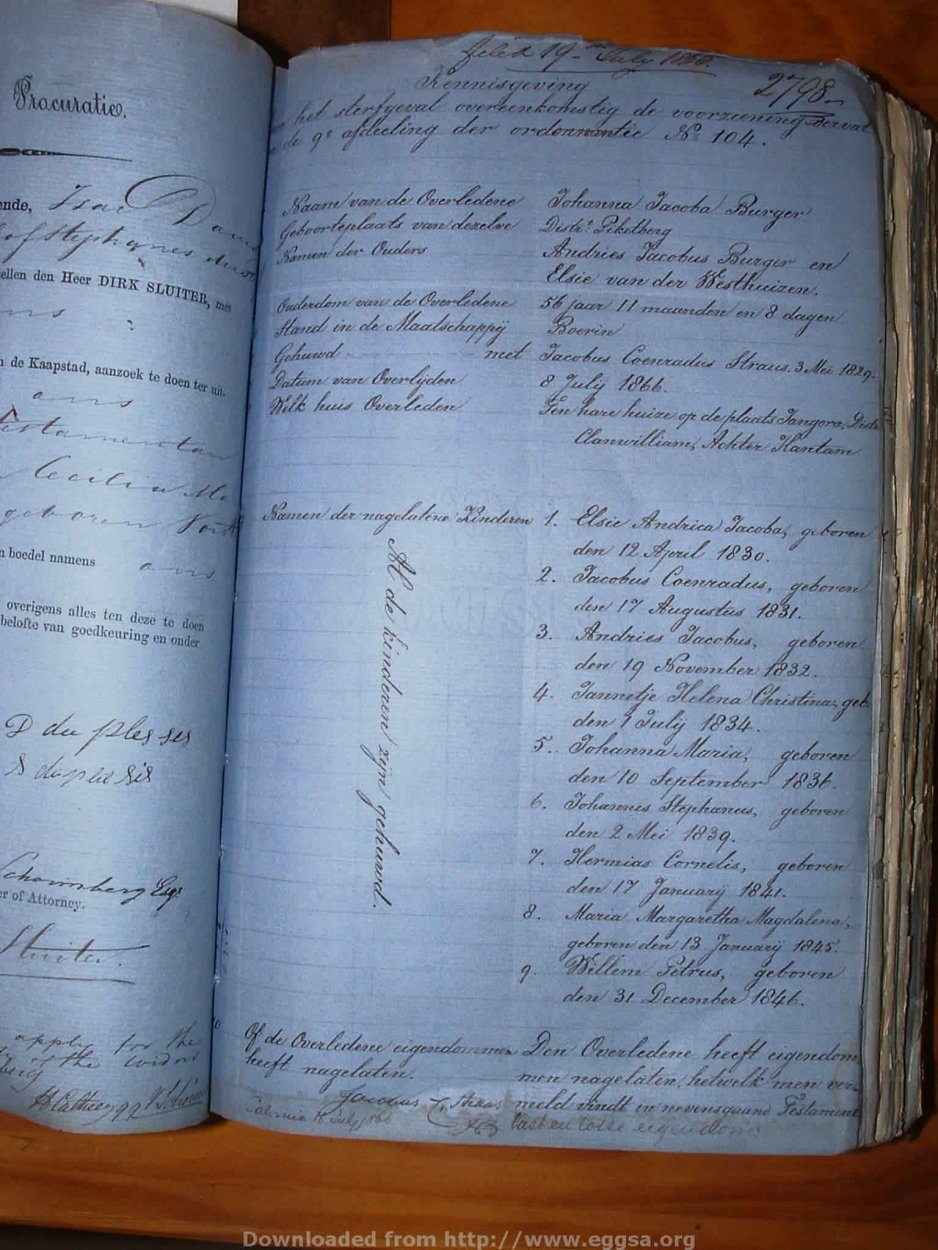 Procuratie.
ende, Isac D
of Stephanes
ellen den Heer DIRK SLUITER, met
ns
n de Kaapstad, aanzoek te doen ter uit-
ons
Cecilia
geboren
n boedel namens
ons
overigens alles ten deze te doen
belofte van goedkeuring en onder
D du plessies
S duplessis
Schomberg Esq.
er of Attorney.
Sluiter.
apply for the
of the widow
Filed 19th July 1866.
2798
Kennisgeving
het sterfgeval overeenkomstig de voorziening vervat
de 9e afdeeling der ordonnantie No 104.
Naam van de Overledene Johanna Jacoba Burger
Geboorteplaats van dezelve Distr. Piketberg
Namen der Ouders Andries Jacobus Burger en
Elsie van der Westhuizen.
Ouderdom van de Overledene 56 jaar 11 maanden en 8 dagen
Stand in de Maatschappij Boerin
Gehuwd - met Jacobus Coenradus Straus. 3 Mei 1829.
Datum van Overlijden 8 July 1866.
Welk huis Overleden Ten hare huize op de plaats Tangora, Distr.
Clanwilliam, Achter Hantam.
Namen der nagelatene Kinderen 1. Elsie Andrica Jacoba, geboren
den 12 April 1830.
2. Jacobus Coenradus, geboren
den 17 Augustus 1831.
3. Andries Jacobus, geboren
den 19 November 1832.
4. Jannetje Helena Christina, geb.
den 1 July 1834.
5. Johanna Maria, geboren
den 10 September 1836.
6. Johannes Stephanus, geboren
den 2 Mei 1839.
7. Hermias Cornelis, geboren
den 17 January 1841.
8. Maria Margaretha Magdalena,
geboren den 13 January 1845.
9. Willem Petrus, geboren
den 31 December 1846.
Al de kinderen zijn gehuwd.
Of de Overledene eigendommen Den Overledene heeft eigendom
heeft nagelaten. men nagelaten, hetwelk men ver-
meld vindt in nevensgaand Testament
Calvinia 18 July 1866 vast en losse eigendom
Downloaded from http://www.eggsa.org